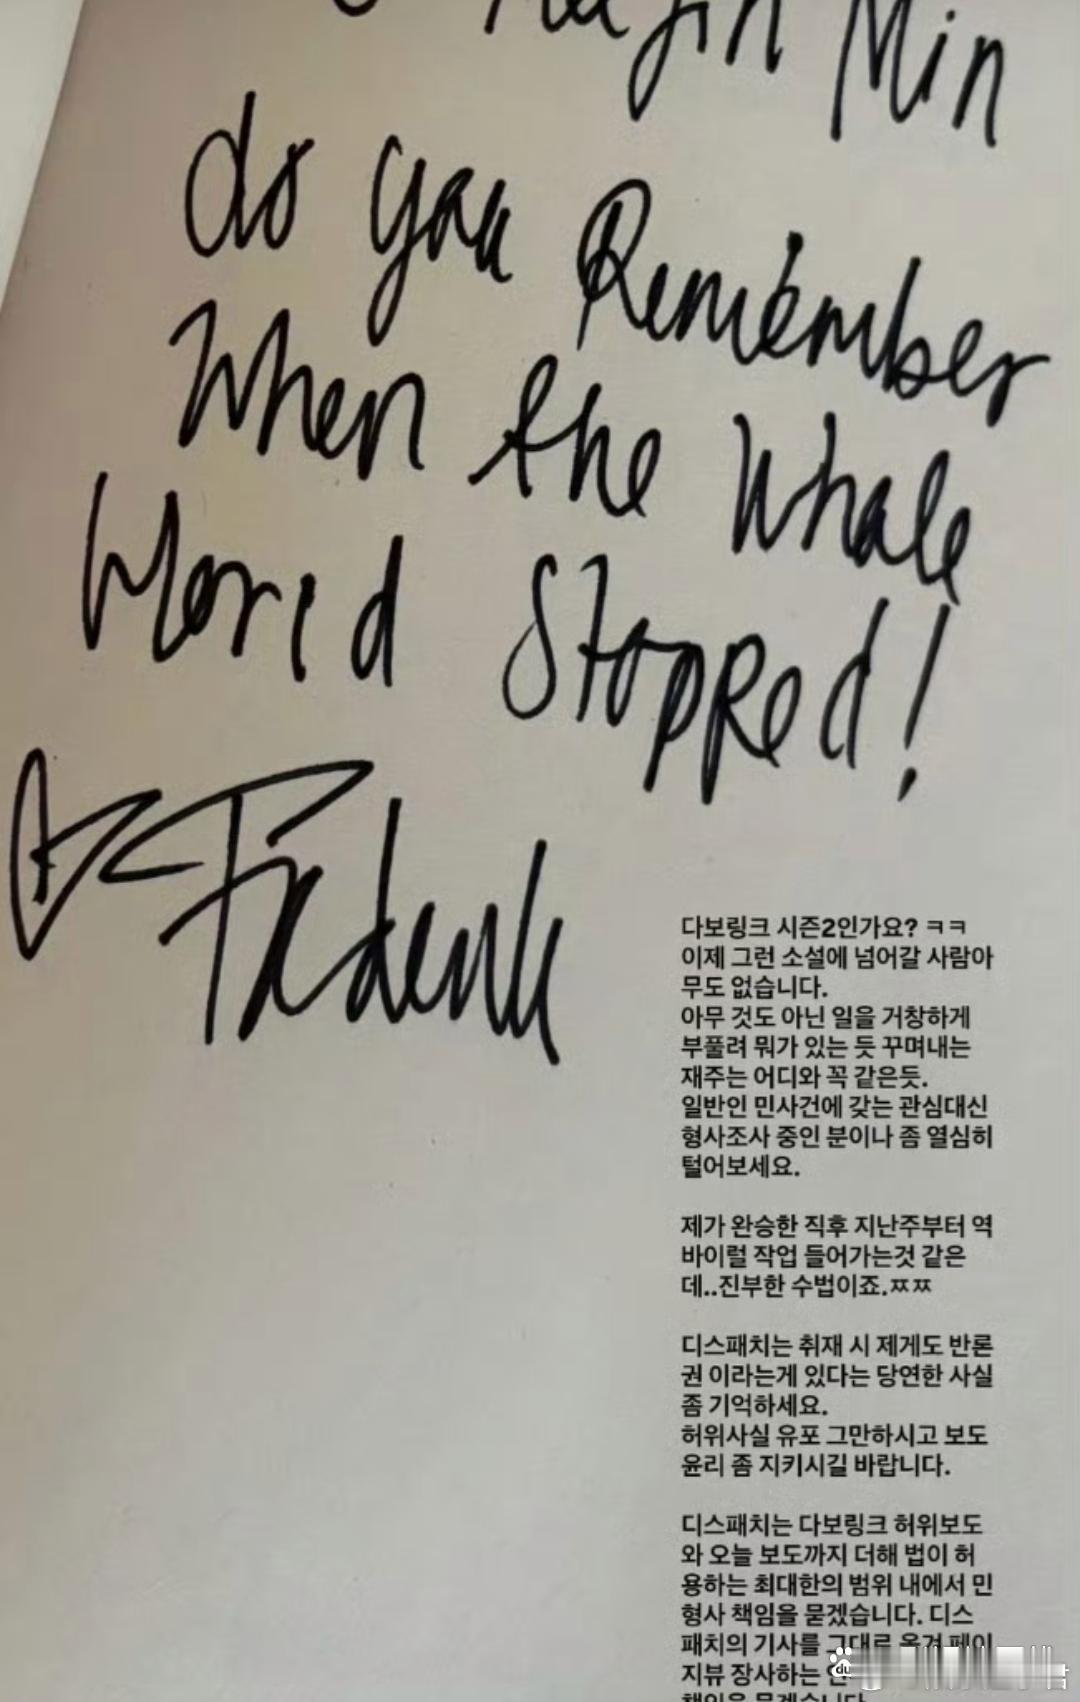 Min
do you Remember
When the Whole
World Stopped!
다보링크 시즌2인가요? ㅋㅋ
이제 그런 소설에 넘어갈 사람아
무도 없습니다.
아무 것도 아닌 일을 거창하게
부풀려 뭐가 있는 듯 꾸며내는
재주는 어디와 꼭 같은듯.
일반인 민사건에 갖는 관심대신
형사조사 중인 분이나 좀 열심히
털어보세요.
제가 완승한 직후 지난주부터 역
바이럴 작업 들어가는것 같은
데..진부한 수법이죠.ㅉㅉ
디스패치는 취재 시 제게도 반론
권 이라는게 있다는 당연한 사실
좀 기억하세요.
허위사실 유포 그만하시고 보도
윤리 좀 지키시길 바랍니다.
디스패치는 다보링크 허위보도
와 오늘 보도까지 더해 법이 허
용하는 최대한의 범위 내에서 민
형사 책임을 묻겠습니다. 디스
패치의 기사를 그대로 옮겨 페이
지뷰 장사하는
책임을 묻겠습니다
du